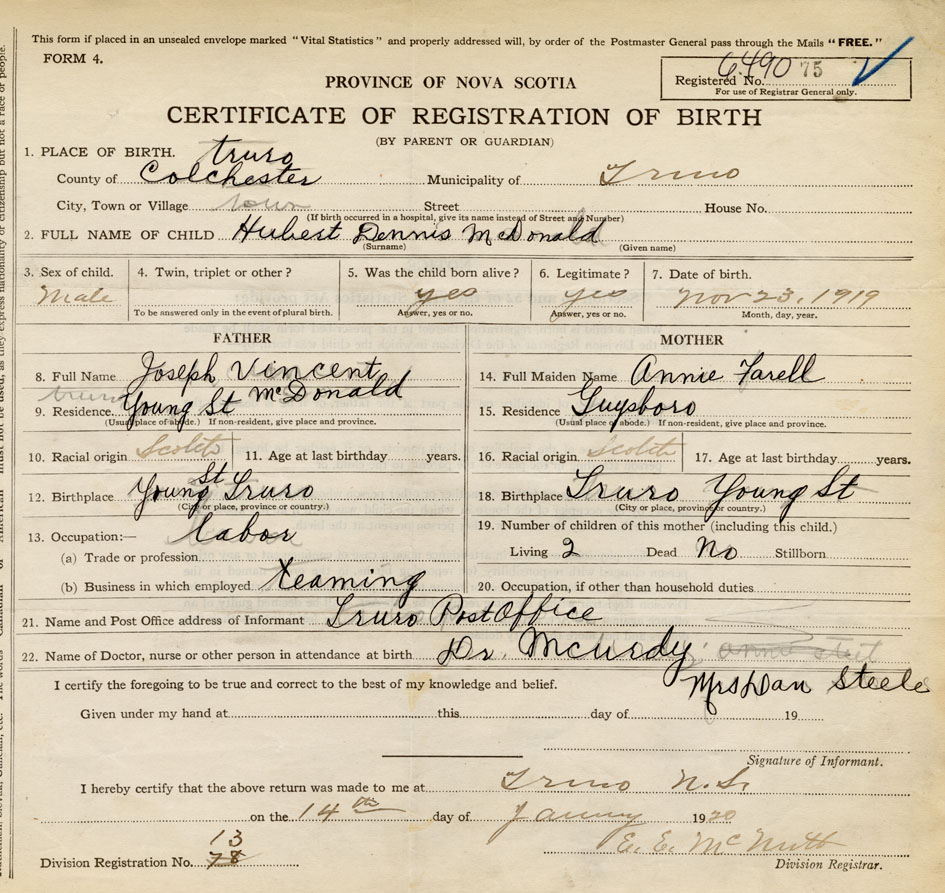 This form if placed in an unsealed envelope marked "Vital Statistics" and properly addressed will, by order of the Postmaster General pass through the Mails "FREE."
FORM 4.
6490 75
Registered No.
For use of Registrar General only.
PROVINCE OF NOVA SCOTIA
CERTIFICATE OF REGISTRATION OF BIRTH
(BY PARENT OR GUARDIAN)
1. PLACE OF BIRTH. truro
County of Colchester Municipality of Truro
City, Town or Village town Street House No.
(If birth occurred in a hospital, give its name instead of Street and Number)
2. FULL NAME OF CHILD Hubert Dennis McDonald
(Surname) (Given name)
3. Sex of child. 4. Twin, triplet or other? 5. Was the child born alive? 6. Legitimate? 7. Date of birth.
Male yes yes Nov 23, 1919
To be answered only in the event of plural birth. Answer, yes or no. Answer, yes or no. Month, day, year.
FATHER
8. Full Name Joseph Vincent
truro McDonald
9. Residence Young St
(Usual place of abode.) If non-resident, give place and province.
10. Racial origin Scotch 11. Age at last birthday years.
12. Birthplace Young St Truro
(City or place, province or country.)
13. Occupation:— labor
(a) Trade or profession
(b) Business in which employed teaming
MOTHER
14. Full Maiden Name Annie Farell
15. Residence Guysboro
(Usual place of abode.) If non-resident, give place and province.
16. Racial origin Scotch 17. Age at last birthday years.
18. Birthplace Truro Young St
(City or place, province or country.)
19. Number of children of this mother (including this child.)
Living 2 Dead No Stillborn
20. Occupation, if other than household duties
21. Name and Post Office address of Informant Truro Post Office
22. Name of Doctor, nurse or other person in attendance at birth Dr.
Mrs Dan Steele
I certify the foregoing to be true and correct to the best of my knowledge and belief.
Given under my hand at this day of 19
Signature of Informant.
I hereby certify that the above return was made to me at Truro N.S.
on the 14th day of January 1920
E. E. McNutt
13
Division Registration No. 78
Division Registrar.